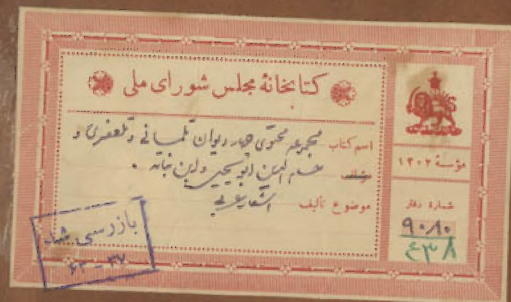 کتابخانهٔ مجلس شورای ملی
مؤسسهٔ ۱۳۰۲
اسم کتاب مجموعه محتوی چهار دیوان تلمسانی و تلعفری و
ابویحیی و ابن نباته .
موضوع تألیف اشعار عربی
شماره دفتر
۹۰۸۰
۴۳۸
بازرسی شد
۳۷ - ۶۳